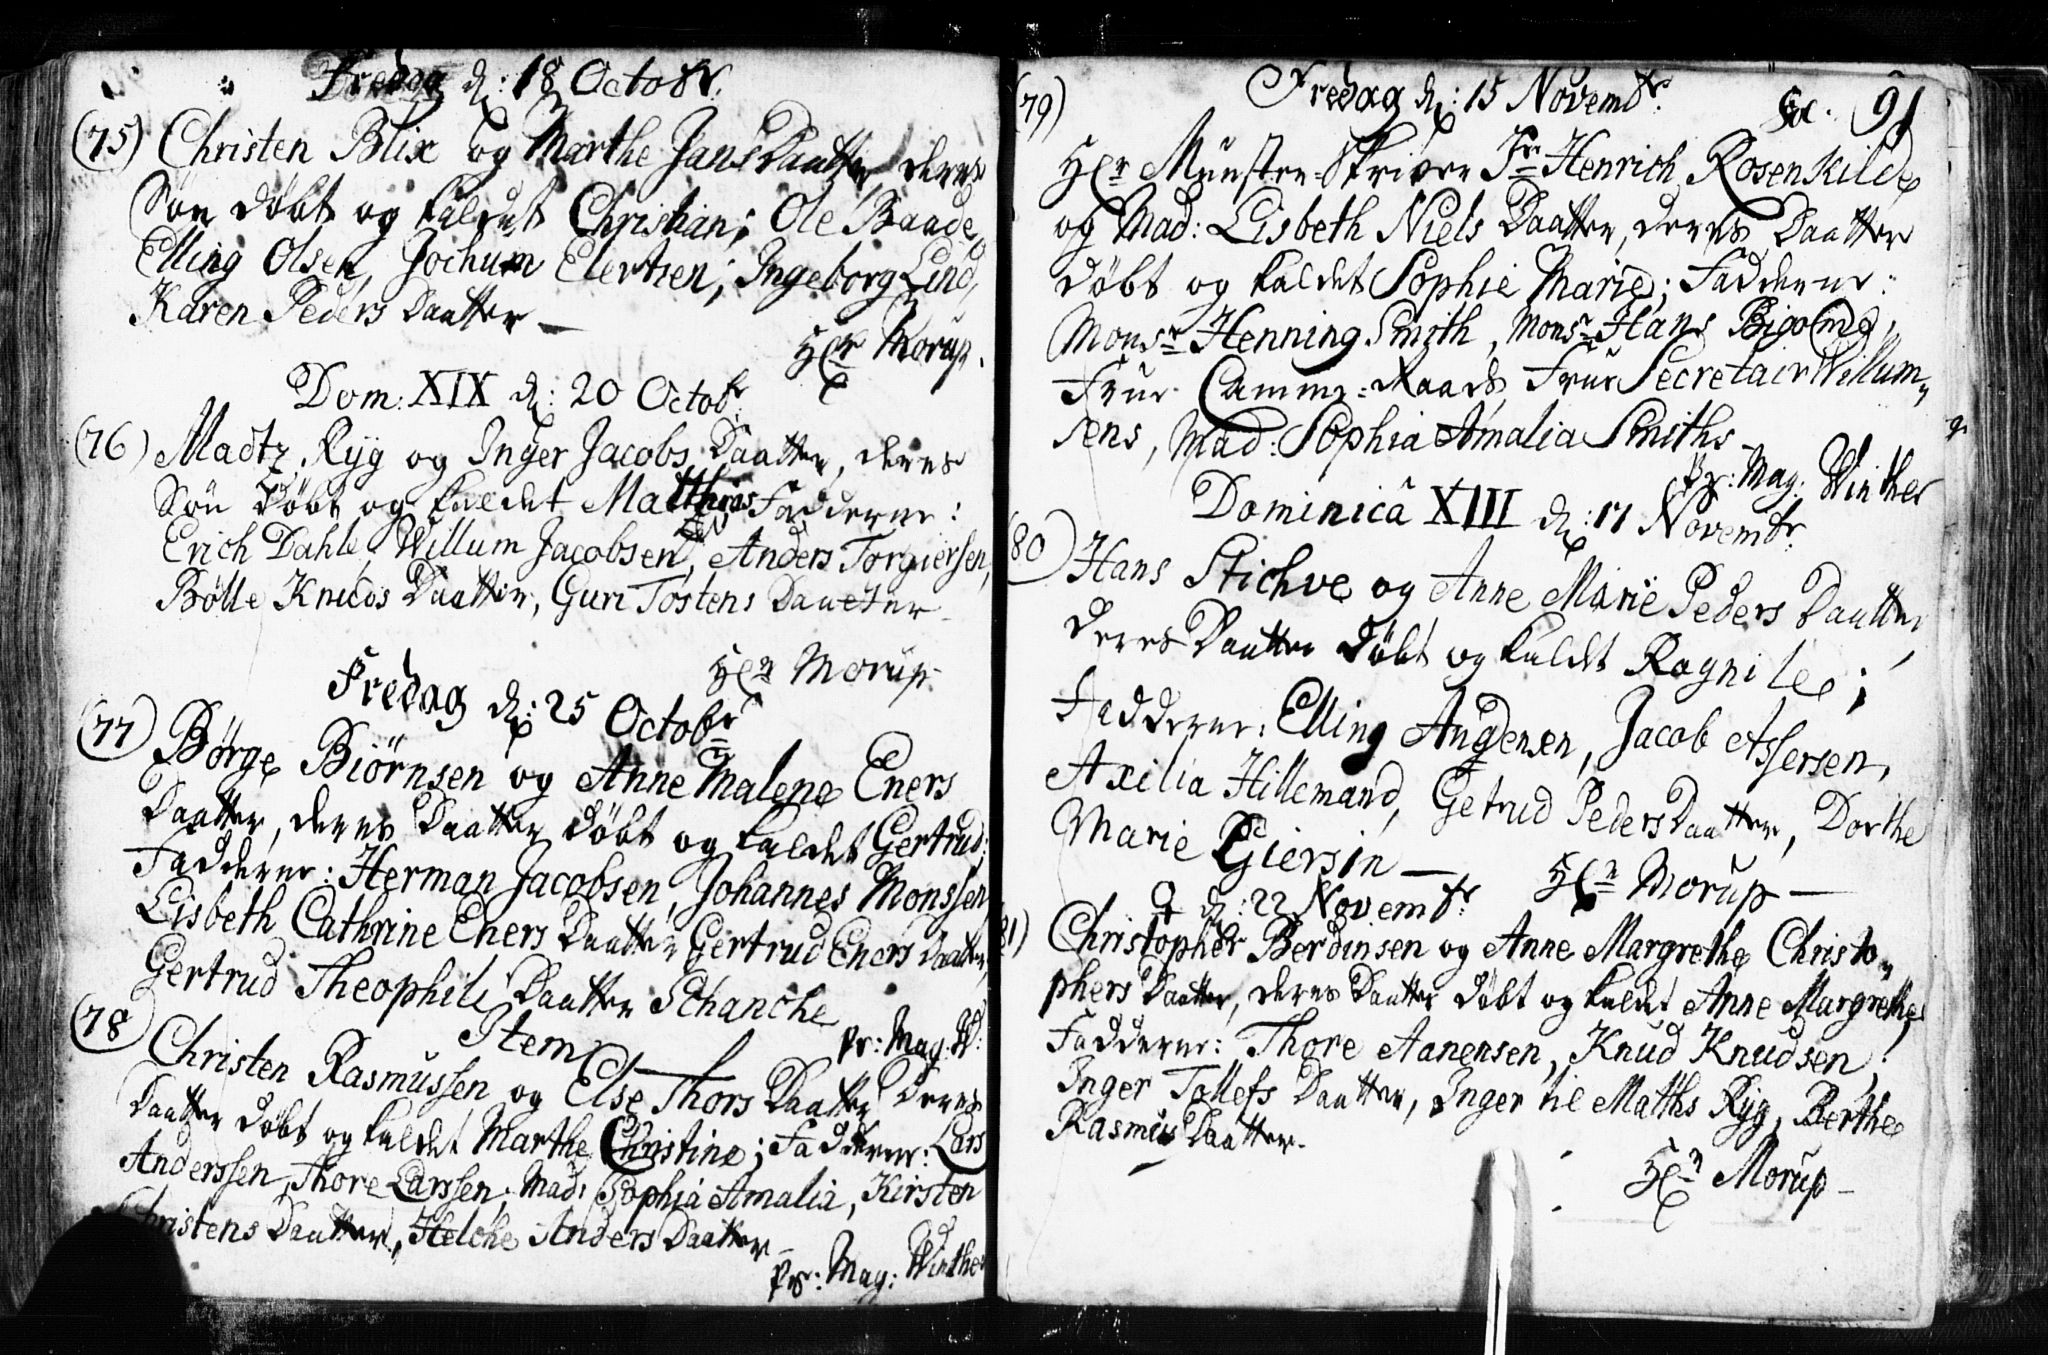 Fredag d: 18 Octobr.
(75) Christen Blix og Marthe Jans Daatter, deres
Søn døbt og kaldet Christian; Ole Baade,
Elling Olsen, Jochum Elertsen; Ingeborg Lind,
Karen Peders Daatter —
Hr Morup.
Dom: XIX d: 20 Octobr.
(76) Madtz Ryg og Inger Jacobs Daatter, deres
Søn døbt og kaldet Matthias Fadderne:
Erich Dahle, Willum Jacobsen, Anders Torgiersen,
Bølle Knuds Daatter, Guri Tostens Daatter
Hr Morup.
Fredag d: 25 Octobr
(77) Børge Biørnsen og Anne Malene Eners
Daatter, deres Daatter døbt og kaldet Gertrud;
Fadderne: Herman Jacobsen, Johannes Monssen
Lisbeth Cathrine Eners Daatter, Gertrud Eners Daatter,
Gertrud Theophili Daatter Schanche
Pr: Mag: W:
Item
(78) Christen Rasmussen og Else Thors Daatter deres
Daatter døbt og kaldet Marthe Christine; Fadderne: Lars
Anderssen, Thore Larssen, Mad: Sophia Amalia, Kirsten
Christens Daatter, Helche Anders Daatter —
Pr: Mag: Winther
Fredag d: 15 Novembr. Fol. 91
(79)
Hr Munster-Skriver Sr Henrich Rosenkilde
og Mad: Lisbeth Niels Daatter, deres Daatter
døbt og kaldet Sophie Marie; Fadderne:
Monsr Henning Smith, Monsr Hans
Frue Cammer-Raads, Frue Secretair Willum-
sens, Mad: Sophia Amalia Smiths —
Pr: Mag. Winther
Dominicâ XIII d: 17 Novembr.
(80) Hans Stichve og Anne Marie Peders Daatter,
deres Daatter døbt og kaldet Ragnile;
Fadderne: Elling Augensen, Jacob Assersen,
Axilia Hillemand, Getrud Peders Daatter, Dorthe
Marie Giersin —
Hr Morup —
♀ d: 22 Novembr.
81) Christopher Berdinsen og Anne Margrethe Christo-
phers Daatter, deres Daatter døbt og kaldet Anne Margrethe,
Fadderne: Thore Aanensen, Knud Knudsen,
Inger Tollefs Daatter, Inger til Matths Ryg, Berthe
Rasmus Daatter.
Hr Morup —